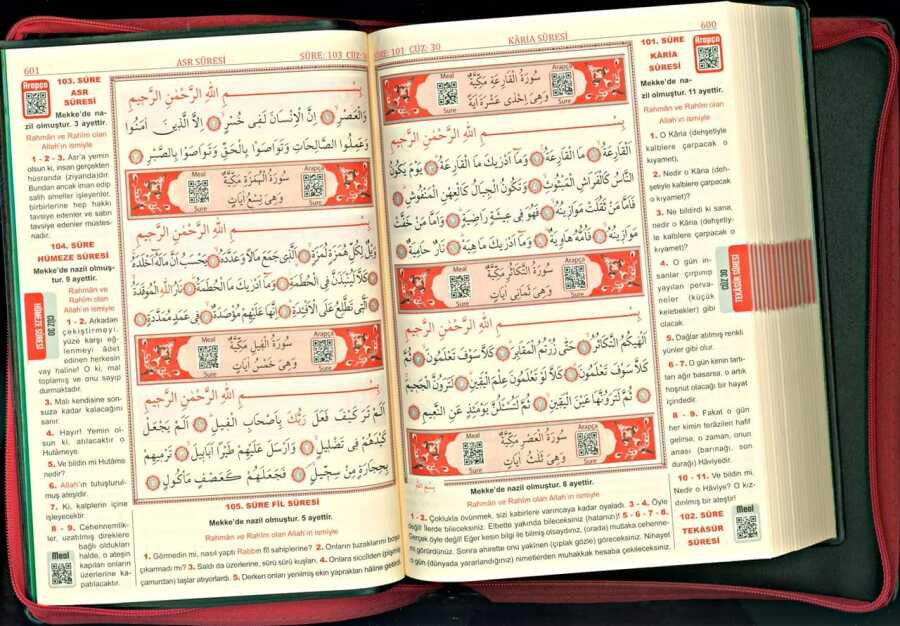 600
KÂRİA SÛRESİ
CÜZ: 30
SÛRE: 101
Meal
Sure
سُورَةُ الْقَارِعَةِ مَكِّيَّةٌ
وَهِيَ اِحْدٰى عَشْرَةَ اٰيَةً
Arapça
Sure
بِسْــــمِ اللّٰهِ الرَّحْمٰنِ الرَّحِيمِ
اَلْقَارِعَةُ ۝ مَا الْقَارِعَةُ ۝ وَمَا اَدْرٰيكَ مَا الْقَارِعَةُ ۝ يَوْمَ يَكُونُ
النَّاسُ كَالْفَرَاشِ الْمَبْثُوثِ ۝ وَتَكُونُ الْجِبَالُ كَالْعِهْنِ الْمَنْفُوشِ ۝
فَاَمَّا مَنْ ثَقُلَتْ مَوَازِينُهُ ۝ فَهُوَ فِى عِيشَةٍ رَاضِيَةٍ ۝ وَاَمَّا مَنْ خَفَّتْ
مَوَازِينُهُ ۝ فَاُمُّهُ هَاوِيَةٌ ۝ وَمَا اَدْرٰيكَ مَا هِيَهْ ۝ نَارٌ حَامِيَةٌ ۝
Meal
Sure
سُورَةُ التَّكَاثُرِ مَكِّيَّةٌ
وَهِيَ ثَمَانِى اٰيَاتٍ
Arapça
Sure
بِسْــــمِ اللّٰهِ الرَّحْمٰنِ الرَّحِيمِ
اَلْهٰيكُمُ التَّكَاثُرُ ۝ حَتّٰى زُرْتُمُ الْمَقَابِرَ ۝ كَلَّا سَوْفَ تَعْلَمُونَ ۝ ثُمَّ
كَلَّا سَوْفَ تَعْلَمُونَ ۝ كَلَّا لَوْ تَعْلَمُونَ عِلْمَ الْيَقِينِ ۝ لَتَرَوُنَّ الْجَحِيمَ
۝ ثُمَّ لَتَرَوُنَّهَا عَيْنَ الْيَقِينِ ۝ ثُمَّ لَتُسْـَٔلُنَّ يَوْمَئِذٍ عَنِ النَّعِيمِ ۝
Meal
Sure
سُورَةُ الْعَصْرِ مَكِّيَّةٌ
وَهِيَ ثَلٰثُ اٰيَاتٍ
Arapça
Sure
101. SÛRE
KÂRİA
SÛRESİ
Arapça
Mekke'de na-
zil olmuştur. 11 ayettir.
Rahmân ve Rahîm olan
Allah'ın ismiyle
1. O Kâria (dehşetiyle
kalblere çarpacak o
kıyamet).
2. Nedir o Kâria (deh-
şetiyle kalblere çarpacak
o kıyamet)?
3. Ne bildirdi ki sana,
nedir o Kâria (dehşetiy-
le kalblere çarpacak o
kıyamet)?
4. O gün in-
sanlar çırpınıp
yayılan perva-
neler (küçük
kelebekler) gibi
olacak.
5. Dağlar atılmış renkli
yünler gibi olur.
6 - 7. O gün kimin tartı-
ları ağır basarsa, o artık
hoşnut olacağı bir hayat
içindedir.
8 - 9. Fakat o gün
her kimin terazileri hafif
gelirse, o zaman, onun
anası (barınağı, son
durağı) Hâviyedir.
10 - 11. Ve bildin mi,
Nedir o Hâviye? O kız-
dırılmış bir ateştir!
102. SÛRE
TEKÂSÜR
SÛRESİ
Meal
CÜZ 30
TEKÂSÜR SÛRESİ
Mekke'de nazil olmuştur. 8 ayettir.
Rahmân ve Rahîm olan Allah'ın ismiyle
1 - 2. Çoklukla övünmek, sizi kabirlere varıncaya kadar oyaladı. 3 - 4. Öyle
değil! İlerde bileceksiniz. Elbette yakında bileceksiniz (hatanızı)! 5 - 6 - 7 - 8.
Gerçek öyle değil! Eğer kesin bilgi ile bilmiş olsaydınız, (orada) mutlaka cehenne-
mi görürdünüz. Sonra ahirette onu yakînen (çıplak gözle) göreceksiniz. Nihayet
o gün (dünyada yararlandığınız) nimetlerden muhakkak hesaba çekileceksiniz.
601
ASR SÛRESİ
SÛRE: 103 CÜZ:
بِسْــــمِ اللّٰهِ الرَّحْمٰنِ الرَّحِيمِ
وَالْعَصْرِ ۝ اِنَّ الْاِنْسَانَ لَفِى خُسْرٍ ۝ اِلَّا الَّذِينَ اٰمَنُوا
وَعَمِلُوا الصَّالِحَاتِ وَتَوَاصَوْا بِالْحَقِّ وَتَوَاصَوْا بِالصَّبْرِ ۝
Meal
Sure
سُورَةُ الْهُمَزَةِ مَكِّيَّةٌ
وَهِيَ تِسْعُ اٰيَاتٍ
Arapça
Sure
بِسْــــمِ اللّٰهِ الرَّحْمٰنِ الرَّحِيمِ
وَيْلٌ لِكُلِّ هُمَزَةٍ لُمَزَةٍ ۝ اَلَّذِى جَمَعَ مَالًا وَعَدَّدَهُ ۝ يَحْسَبُ اَنَّ مَالَهُ اَخْلَدَهُ
۝ كَلَّا لَيُنْبَذَنَّ فِى الْحُطَمَةِ ۝ وَمَا اَدْرٰيكَ مَا الْحُطَمَةُ ۝ نَارُ اللّٰهِ الْمُوقَدَةُ
۝ اَلَّتِى تَطَّلِعُ عَلَى الْاَفْـِٔدَةِ ۝ اِنَّهَا عَلَيْهِمْ مُؤْصَدَةٌ ۝ فِى عَمَدٍ مُمَدَّدَةٍ ۝
Meal
Sure
سُورَةُ الْفِيلِ مَكِّيَّةٌ
وَهِيَ خَمْسُ اٰيَاتٍ
Arapça
Sure
بِسْــــمِ اللّٰهِ الرَّحْمٰنِ الرَّحِيمِ
اَلَمْ تَرَ كَيْفَ فَعَلَ رَبُّكَ بِاَصْحَابِ الْفِيلِ ۝ اَلَمْ يَجْعَلْ
كَيْدَهُمْ فِى تَضْلِيلٍ ۝ وَاَرْسَلَ عَلَيْهِمْ طَيْرًا اَبَابِيلَ ۝ تَرْمِيهِمْ
بِحِجَارَةٍ مِنْ سِجِّيلٍ ۝ فَجَعَلَهُمْ كَعَصْفٍ مَأْكُولٍ ۝
Arapça
103. SÛRE
ASR
SÛRESİ
Mekke'de na-
zil olmuştur. 3 ayettir.
Rahmân ve Rahîm olan
Allah'ın ismiyle
1 - 2 - 3. Asr'a yemin
olsun ki, insan gerçekten
hüsranda (ziyanda)dır.
Bundan ancak iman edip
salih ameller işleyenler,
birbirlerine hep hakkı
tavsiye edenler ve sabrı
tavsiye edenler müstes-
nadır.
104. SÛRE
HÜMEZE SÛRESİ
Mekke'de nazil olmuş-
tur. 9 ayettir.
Rahmân ve
Rahîm olan
Allah'ın ismiyle
1 - 2. Arkadan
çekiştirmeyi,
yüze karşı eğ-
lenmeyi âdet
edinen herkesin
vay haline! O ki, mal
toplamış ve onu sayıp
durmaktadır.
3. Malı kendisine son-
suza kadar kalacağını
sanır.
4. Hayır! Yemin ol-
sun ki, atılacaktır o
Hutâmeye.
5. Ve bildin mi Hutâme
nedir?
6. Allah'ın tutuşturul-
muş ateşidir.
7. Ki, kalplerin içine
işleyecektir.
8 - 9. Cehennemlik-
ler, uzatılmış direklere
bağlı oldukları
halde, o ateşin
kapıları onların
üzerlerine ka-
patılacaktır.
Meal
CÜZ 30
HÜMEZE SÛRESİ
105. SÛRE FÎL SÛRESİ
Mekke'de nazil olmuştur. 5 ayettir.
Rahmân ve Rahîm olan Allah'ın ismiyle
1. Görmedin mi, nasıl yaptı Rabb'in fil sahiplerine? 2. Onların tuzaklarını boşa
çıkarmadı mı? 3. Saldı da üzerlerine, sürü sürü kuşları, 4. Onlara siccîlden (pişmiş
çamurdan) taşlar atıyorlardı. 5. Derken onları yenilmiş ekin yaprakları hâline getirdi.